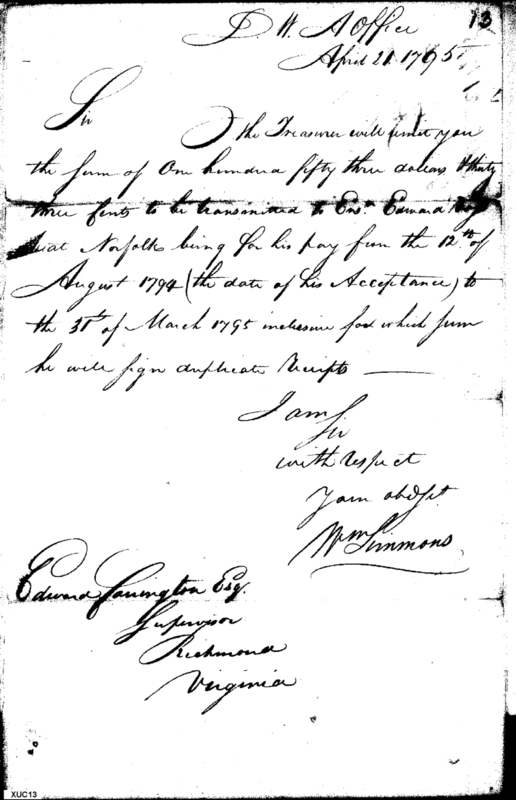 13
D. W. A Office
April 21. 1795.
Sir
The Treasurer will remit you
the sum of One hundred fifty three dollars & thirty
three Cents to be transmitted to Ensn. Edward
at Norfolk being for his pay from the 12th of
August 1794 (the date of his Acceptance) to
the 31st of March 1795 inclusive for which sum
he will sign duplicate receipts
I am
Sir
with respect
Your obd Set
Wm Simmons
Edward Carrington Esq.
Supervisor
Richmond
Virginia
XUC13